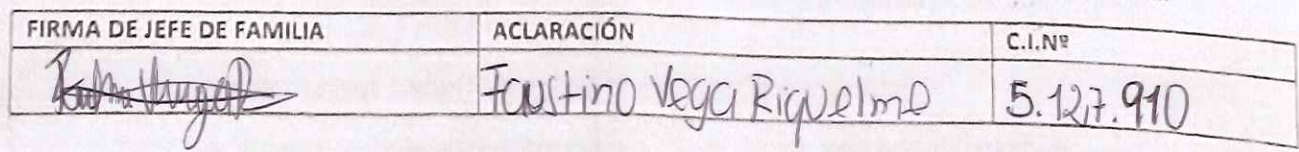 FIRMA DE JEFE DE FAMILIA ACLARACIÓN C.I.Nº
Faustino Vega Riquelme 5.127.910